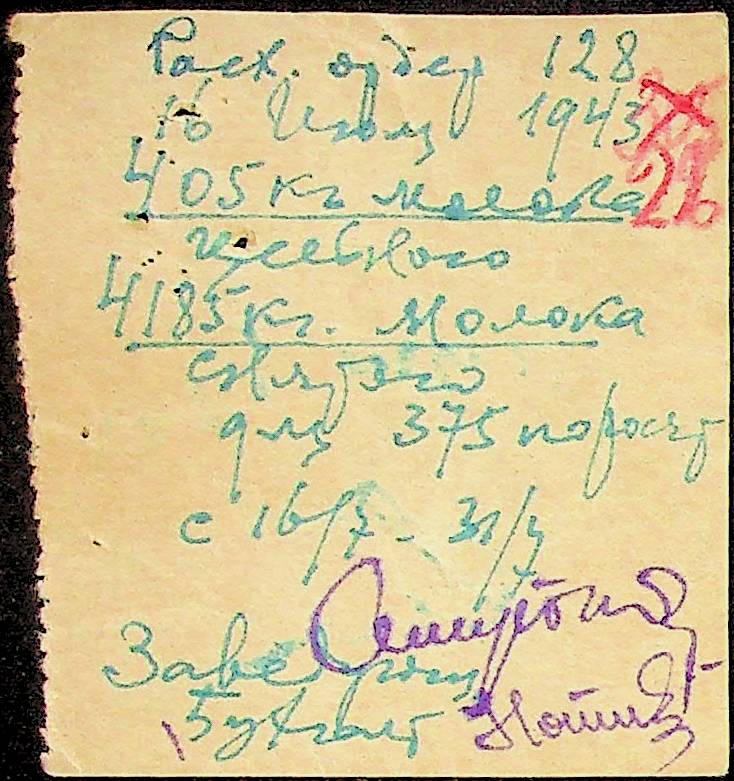 Расх. ордер 128
16 Июля 1943
21
405 кг молока
цельного
4185 кг. Молока
снятого
для 375 поросят
с 16/7 - 31/7
Завед
Бухгалт